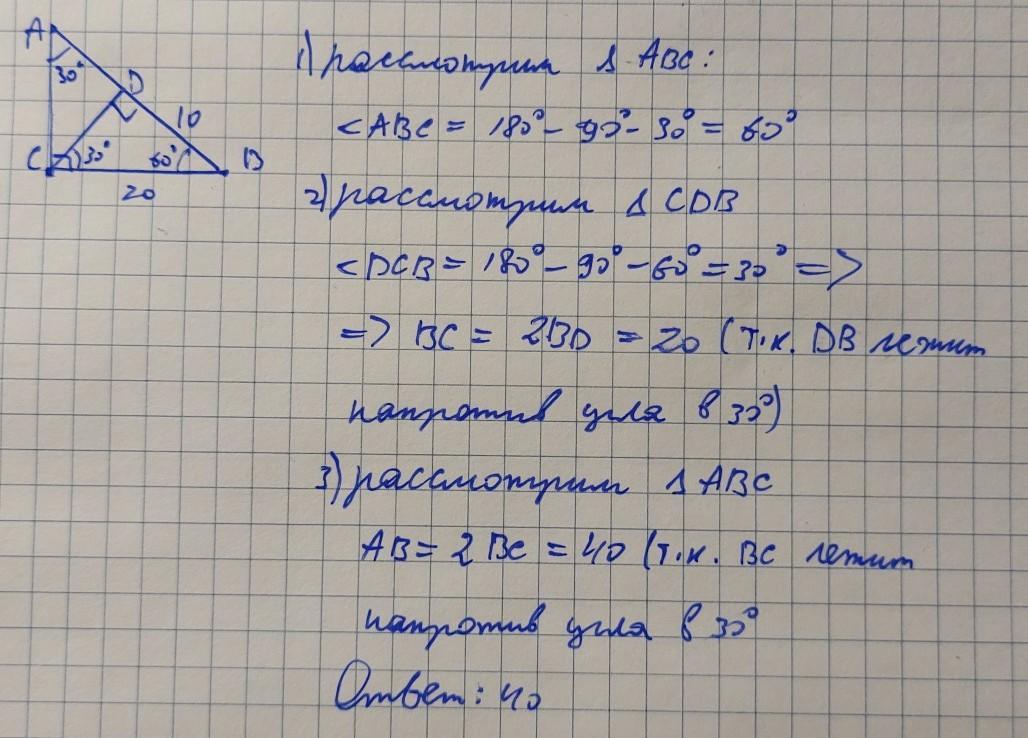 A
30°
D
10
C 30° 60° B
20
1) рассмотрим Δ ABC:
<ABC = 180° - 90° - 30° = 60°
2) рассмотрим Δ CDB
<DCB = 180° - 90° - 60° = 30° =>
=> BC = 2BD = 20 (т.к. DB лежит
напротив угла в 30°)
3) рассмотрим Δ ABC
AB = 2 BC = 40 (т.к. BC лежит
напротив угла в 30°
Ответ: 40